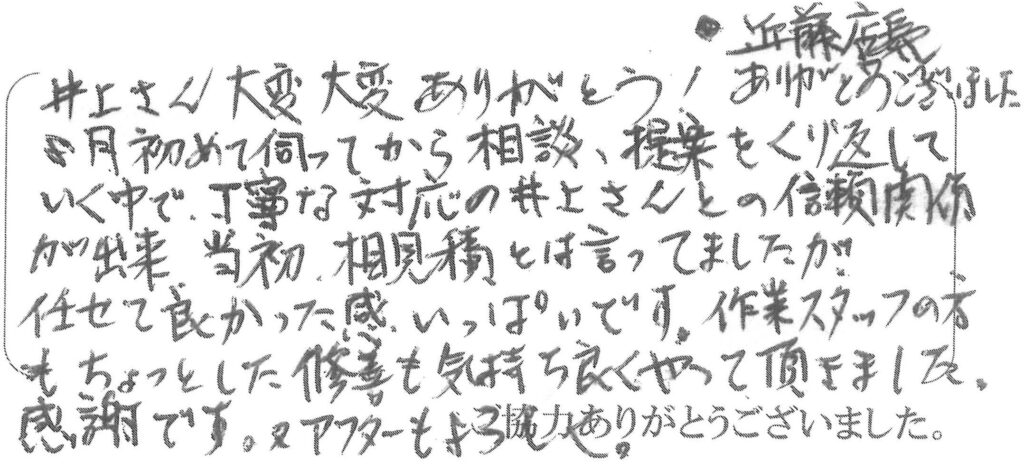 ●近藤店長
井上さん大変大変ありがとう！ありがとうございました
8月初めて伺ってから相談、提案をくり返して
いく中で、丁寧な対応の井上さんとの信頼関係
が出来、当初、相見積とは言ってましたが
任せて良かった感、いっぱいです。作業スタッフの方
もちょっとした修善も気持ち良くやって頂きました。
感謝です。又アフターもよろしく。
ご協力ありがとうございました。